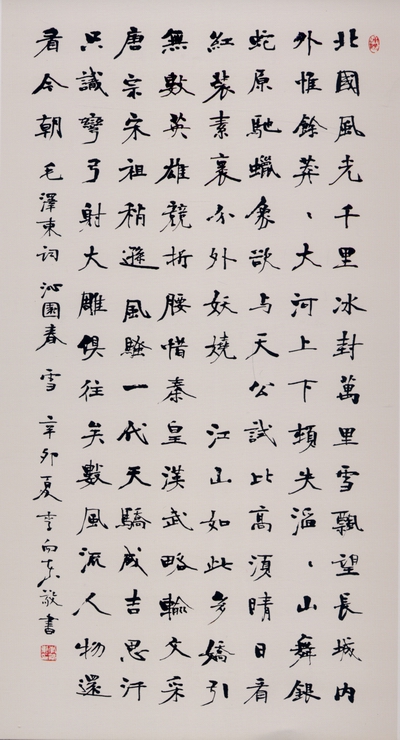 北國風光千里冰封萬里雪飄望長城内
外惟餘莽、大河上下頓失滔、山舞銀
蛇原馳蠟象欲与天公試比高須晴日看
紅裝素裹分外妖嬈 江山如此多嬌引
無數英雄競折腰惜秦皇漢武略輸文采
唐宗宋祖稍遜風騷一代天驕成吉思汗
只識彎弓射大雕俱往矣數風流人物還
看今朝 毛澤東词 沁園春 雪 辛卯夏李向东敬書